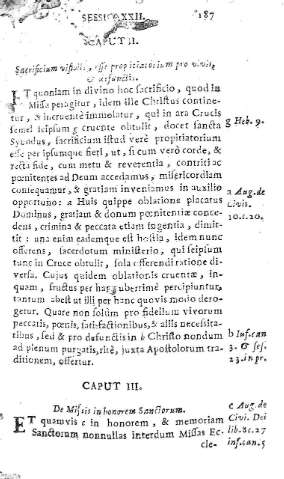 SESSIO XXII. 187
CAPUT II.
Sacrificium visibile, esse propitiatorium pro vivis
& defunctis.
ET quoniam in divino hoc sacrificio, quod in
Missa peragitur, idem ille Christus contine-
tur, & incruentè immolatur, qui in ara Crucis
semel seipsum g cruente obtulit, docet sancta g Heb. 9.
Synodus, sacrificium istud verè propitiatorium
esse per ipsumque fieri, ut, si cum verò corde, &
recta fide, cum metu & reverentia, contriti ac
pœnitentes ad Deum accedamus, misericordiam
consequamur, & gratiam inveniamus in auxilio
opportuno: a Hujus quippe oblatione placatus a Aug. de
Dominus, gratiam & donum pœnitentiæ conce- Civit.
dens, crimina & peccata etiam ingentia, dimit- 10. c. 20.
tit: una enim eademque est hostia, idem nunc
offerens, sacerdotum ministerio, qui seipsum
tunc in Cruce obtulit, sola offerendi ratione di-
versa. Cujus quidem oblationis cruentæ, in-
quam, fructus per hanc uberrimè percipiuntur,
tantum abest ut illi per hanc quovis modo dero-
getur. Quare non solùm pro fidelium vivorum
peccatis, pœnis, satisfactionibus, & aliis necessita-
tibus, sed & pro defunctis in b Christo nondum b Inf. can
ad plenum purgatis, ritè, juxta Apostolorum tra- 3. & ses.
ditionem, offertur. 23. in pr.
CAPUT III.
De Missis in honorem Sanctorum. c Aug. de
ET quamvis c in honorem, & memoriam Civit. Dei
Sanctorum nonnullas interdum Missas Ec- lib. 8 c. 27
cle- inf. can. 5